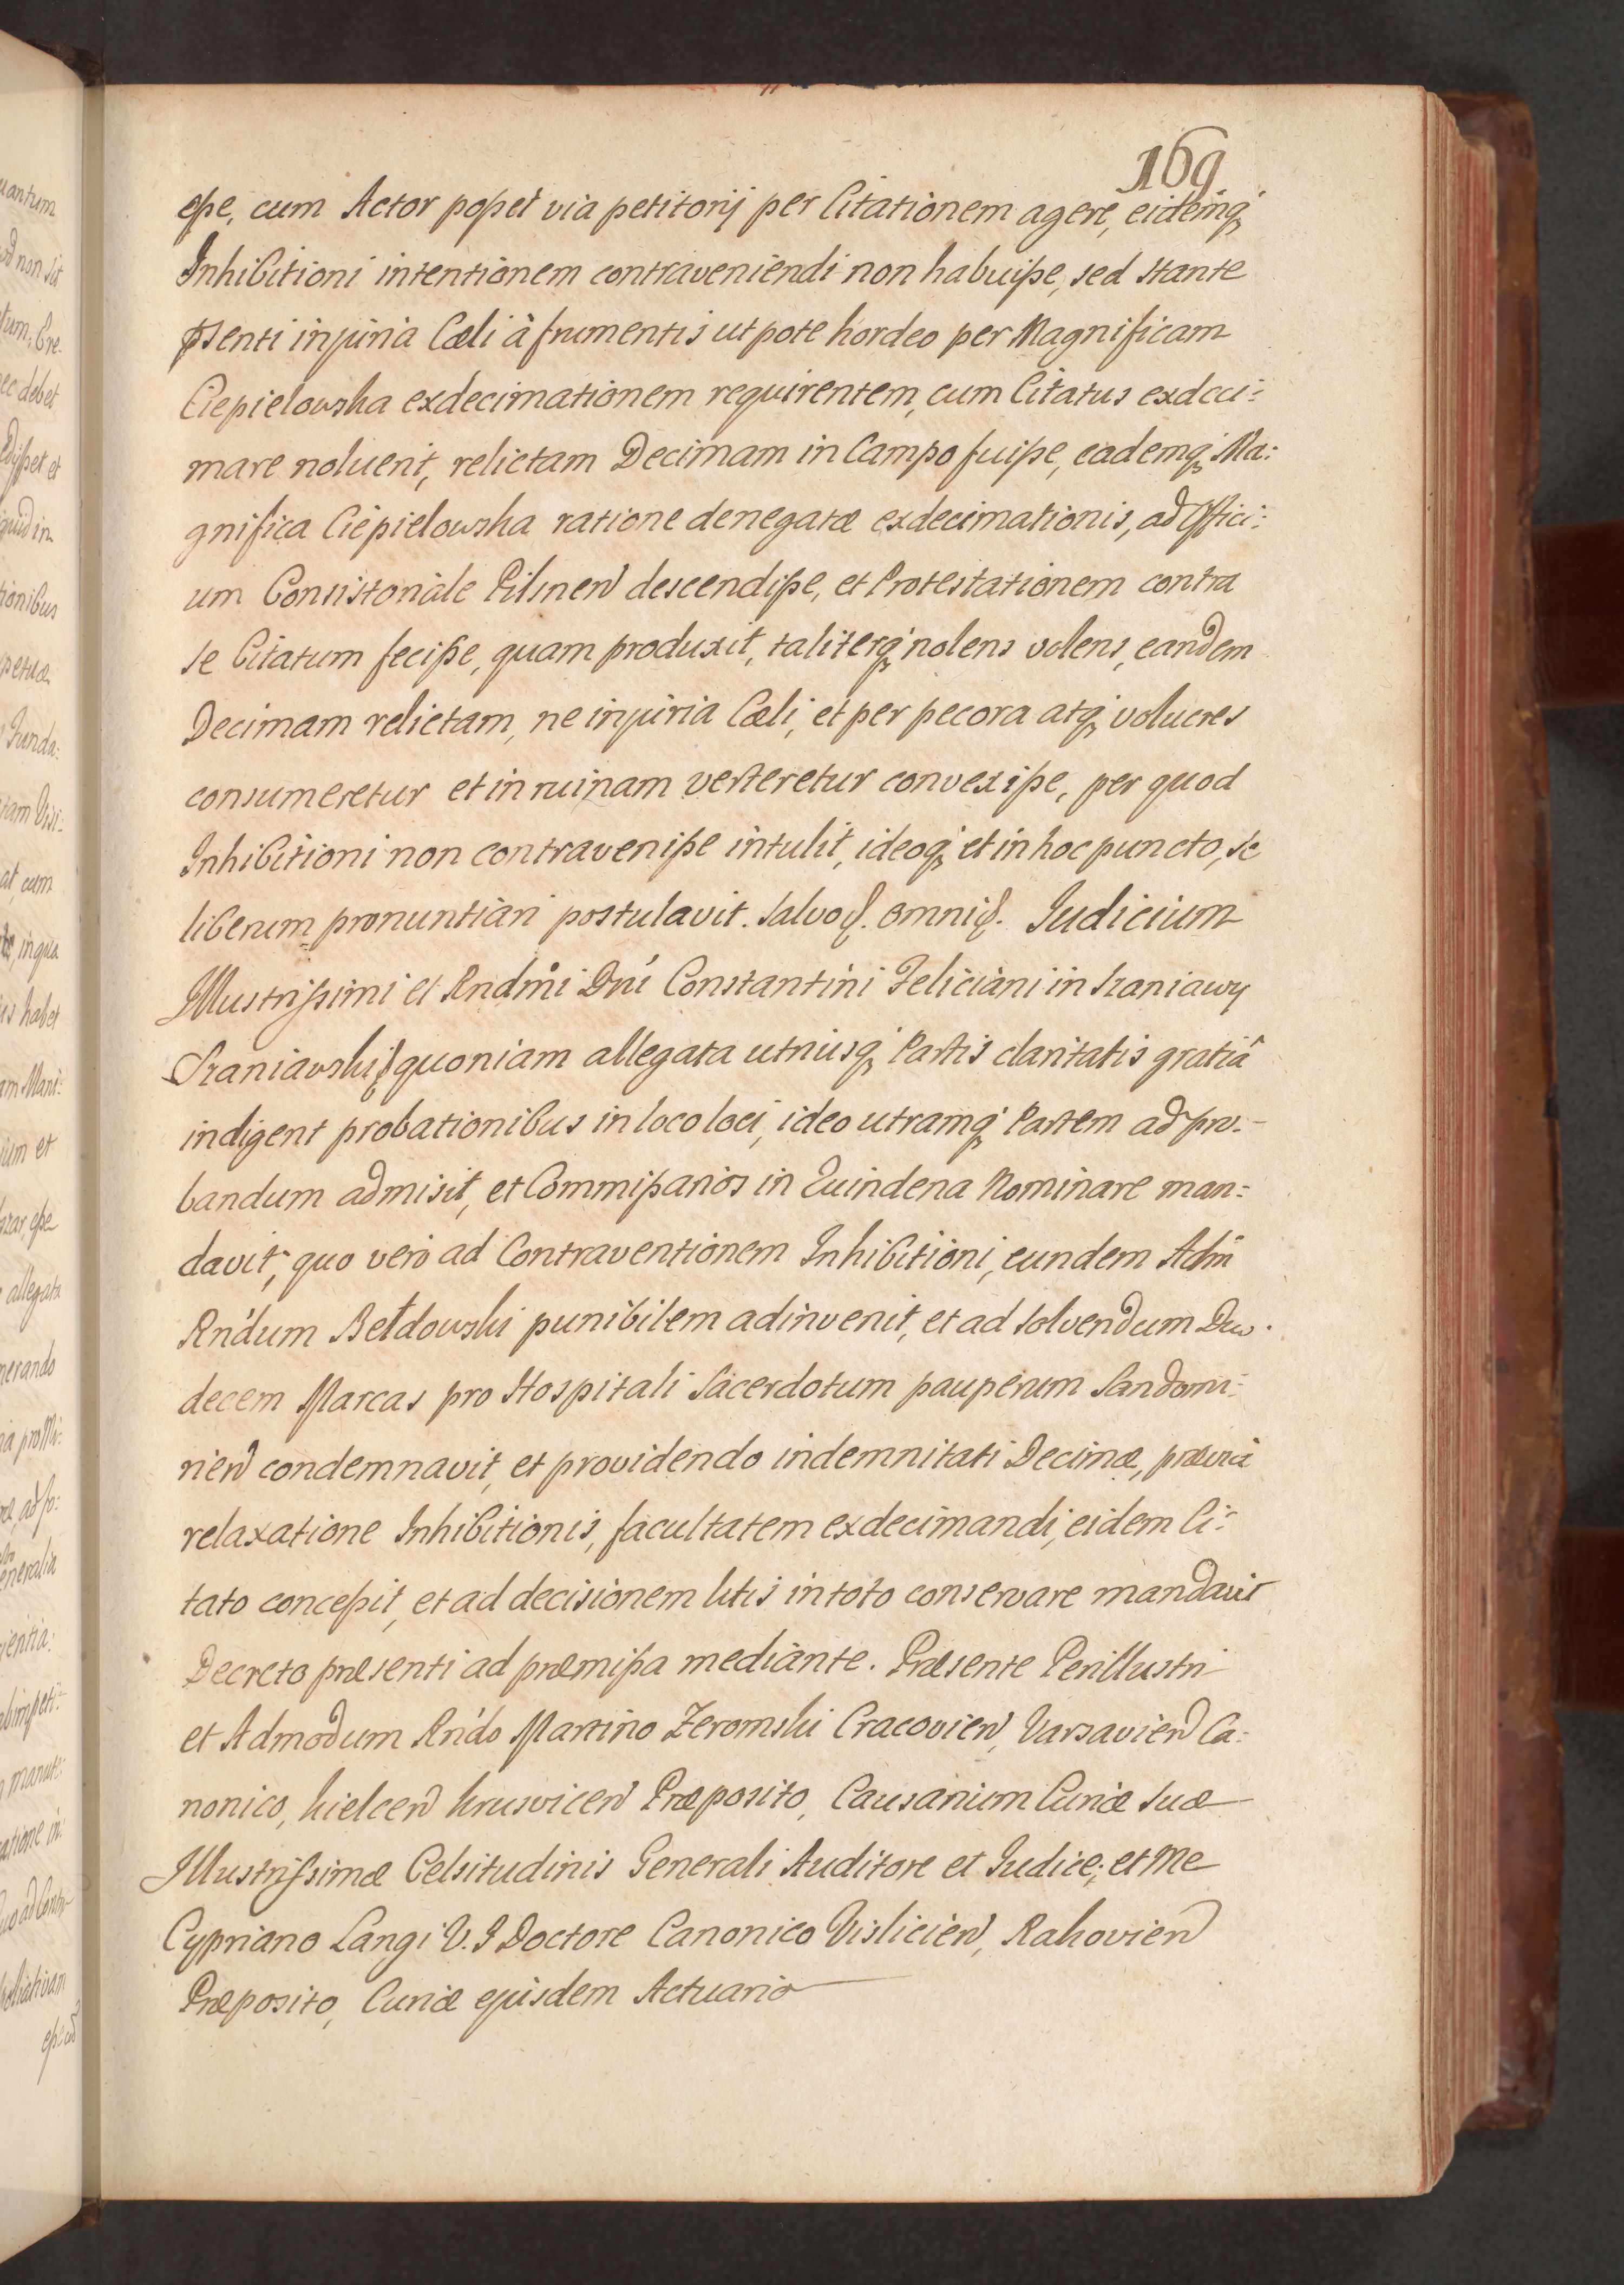 169
eße, cum Actor poßet via petitorij per Citationem agere, eidemq̨
Inhibitioni intentionem contraveniendi non habuiße, sed stante
pʃenti injuria Cæli à frumentis utpote hordeo per Magnificam
Ciepielowska exdecimationem requirentem, cum Citatus exdeci:
mare noluerit, relictam Decimam in Campo fuiße, eademq̨ Ma:
gnifica Ciepielowska ratione denegatæ exdecimationis, ad Offici:
um Consistoriale Pilsnen descendiße, et Protestationem contra
se Citatum feciße, quam produxit, taliterq̨ nolens volens, eandem
Decimam relictam, ne injuria Cæli, et per pecora atq̨ volucres
consumeretur et in ruinam verteretur convexiße, per quod
Inhibitioni non contraveniße intulit, ideoq̨ et in hoc puncto, se
liberum pronuntiari postulavit. Salvoq̨. omniq̨. Iudicium
Illustrißimi et Rndmi Dni Constantini Feliciani in Szaniawy
Szaniawski, quoniam allegata utriusq̨ Partis claritatis gratiâ
indigent probationibus in loco loci, ideo utramq̨ Partem ad pro:
bandum admisit, et Commißarios in Quindena Nominare man:
davit, quo vero ad Contraventionem Inhibitioni, eundem Adm
Rndum Bełdowski punibilem adinvenit, et ad solvendum Duo.
decem Marcas pro Hospitali Sacerdotum pauperum Sandomi:
rien condemnavit, et providendo indemnitati Decimæ, prævia
relaxatione Inhibitionis, facultatem exdecimandi, eidem Ci:
tato conceßit, et ad decisionem litis in toto conservare mandavit
Decreto præsenti ad præmißa mediante. Præsente Perillustri
et Admodum Rndo Martino Zeromski Cracovien, Varsavien Ca:
nonico, Kielcen Krusvicen Præposito, Causarum Curiæ Suæ
Illustrißimæ Celsitudinis Generali Auditore et Iudice; et Me
Cypriano Langi V. I Doctore Canonico Vislicien, Rakovien
Præposito, Curiæ ejusdem Actuario